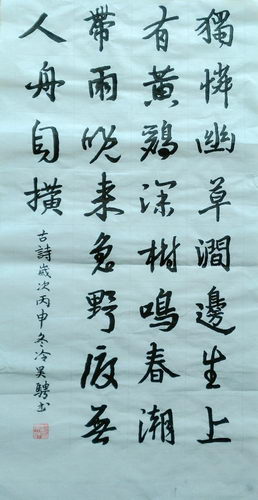 獨憐幽草澗邊生上
有黃鸝深樹鳴春潮
帶雨晚来急野渡無
人舟自橫
古詩歲次丙申冬冷吴书